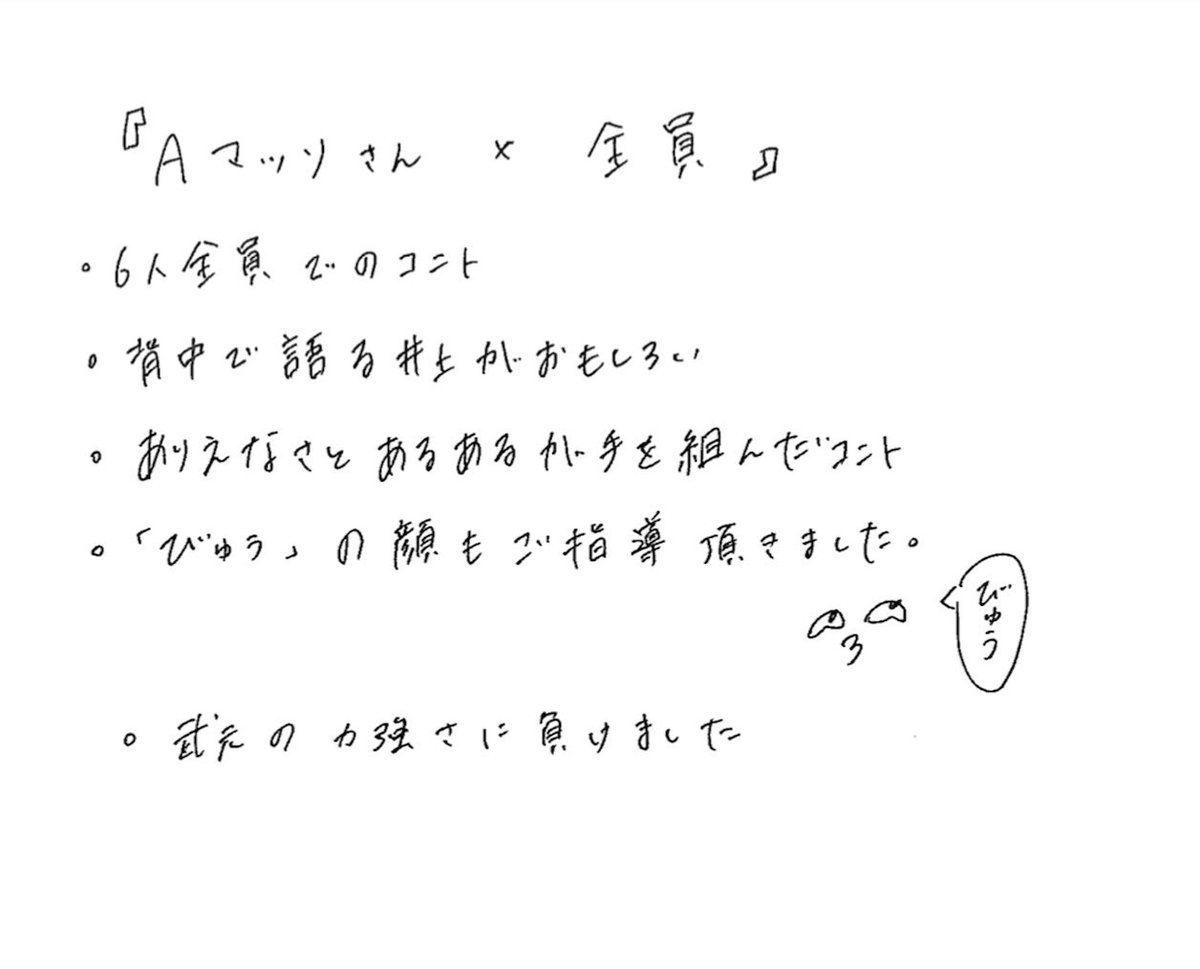 『Aマッソさん × 全員』
◦ 6人全員でのコント
◦ 背中で語る井上がおもしろい
◦ ありえなさとあるあるが手を組んだコント
◦ 「びゅう」の顔もご指導頂きました。
びゅう
◦ 武元の力強さに負けました